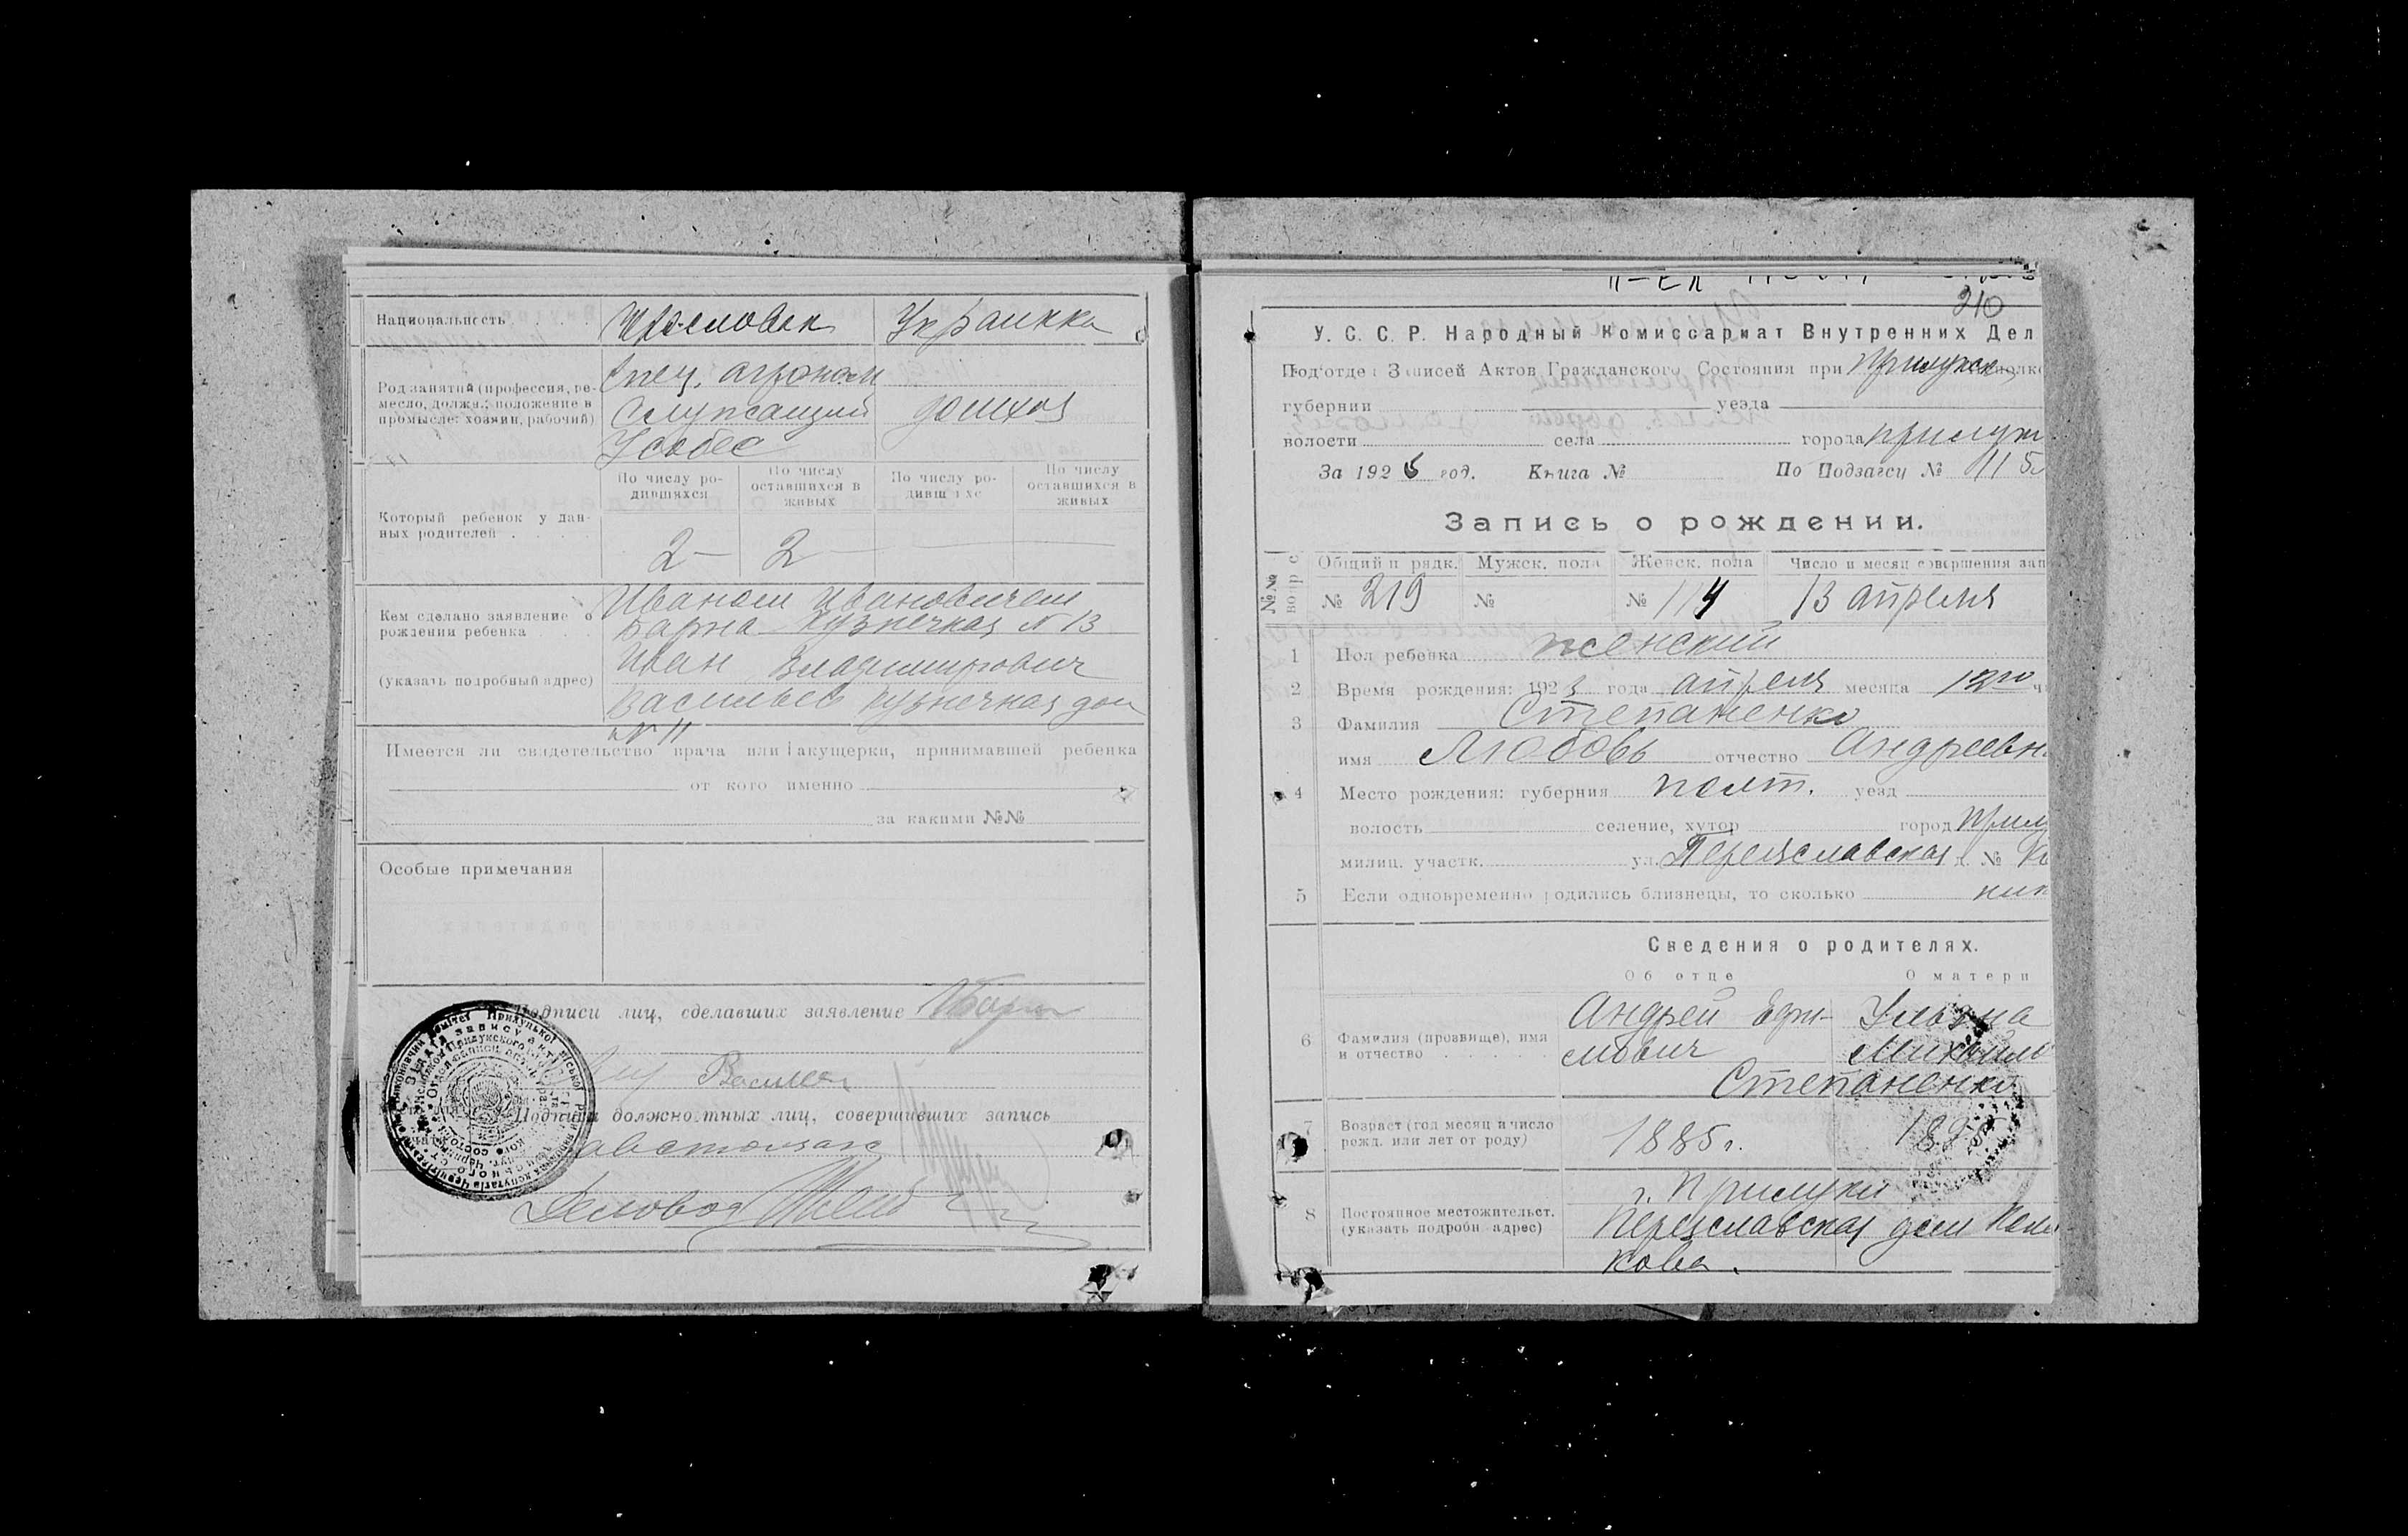 Национальность Чехословак Украинка
Род занятий (профессия, ре-
месло, должн., положение в
промысле: хозяин, рабочий)
Спец. агроном
Служащий домхоз
Усобес
Который ребенок у дан-
ных родителей
По числу ро-
дившихся
По числу
оставшихся в
живых
По числу ро-
дивш хс
По числу
оставшихся в
живых
2 — 2 —
Кем сделано заявление о
рождении ребенка
(указать подробный адрес)
Иваном Ивановичем
Барта Кузнечная № 13
Иван Владимирович
Васильев Кузнечная дом
№ 11
Имеется ли свидетельство врача или акушерки, принимавшей ребенка
от кого именно
за какими №№
Особые примечания
Подписи лиц, сделавших заявление
Васильев
Подписи должностных лиц, совершивших запись
Деловод
210
У. С. С. Р. Народный Комиссариат Внутренних Дел
Под'отдел Записей Актов Гражданского Состояния при Прилукск
губернии уезда
волости села города Прилук
За 1925 год. Книга № По Подзагсу № 115
Запись о рождении.
№№ Общий п рядк. Мужск. пола Женск. пола Число и месяц совершения зап
№ 219 № № 114 13 апреля
1 Пол ребенка женский
2 Время рождения: 1923 года апреля месяца 12го ч
3 Фамилия Степаненко
имя Любовь отчество Андреевн
4 Место рождения: губерния полт. уезд
волость селение, хутор город Прилу
милиц. участк. ул. Переяславская №
5 Если одновременно родились близнецы, то сколько
Сведения о родителях.
Об отце О матери
6 Фамилия (прозвище), имя
и отчество
Андрей Ефи- Ульяна
мович Михайло
Степаненко
7 Возраст (год месяц и число
рожд. или лет от роду)
1885 г. 189
8 Постоянное местожительст.
(указать подробн адрес)
г. Прилуки
Переяславская дом
кова.